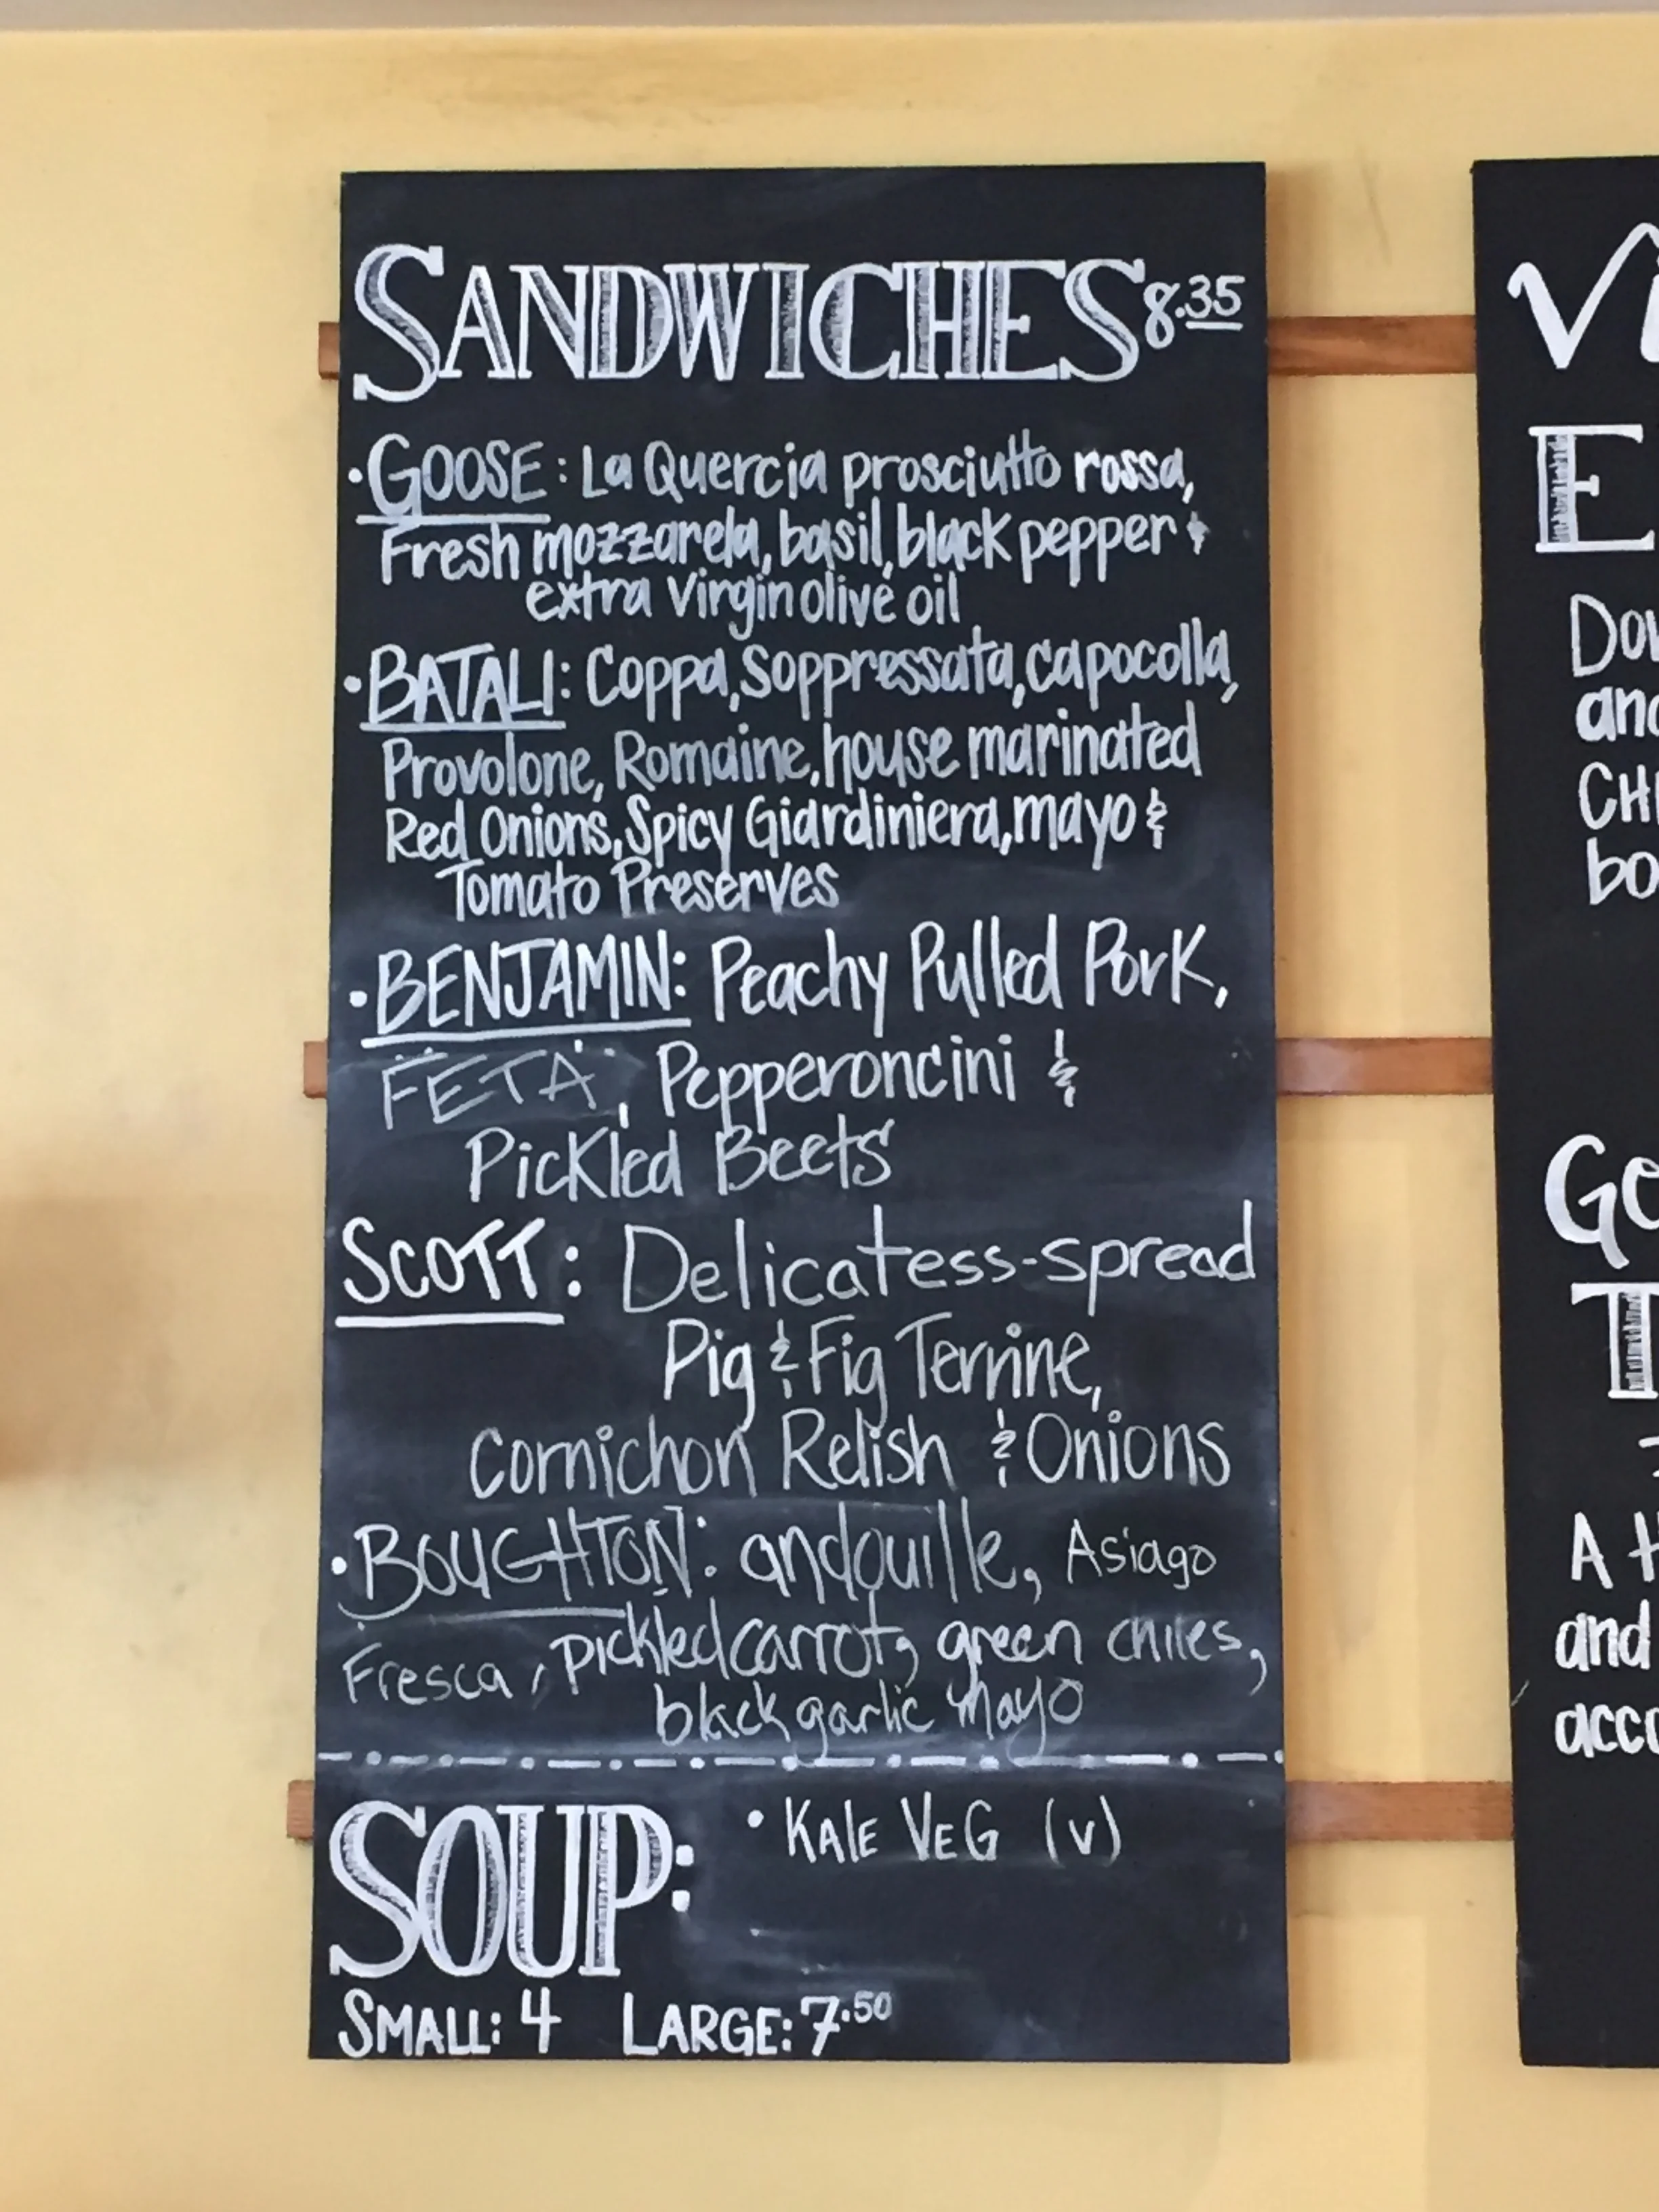 SANDWICHES 8.35
• GOOSE: La Quercia prosciutto rossa,
Fresh mozzarela, basil, black pepper &
extra virgin olive oil
• BATALI: Coppa, Soppressata, capocolla,
Provolone, Romaine, house marinated
Red Onions, Spicy Giardiniera, mayo &
Tomato Preserves
• BENJAMIN: Peachy Pulled Pork,
FETA, Pepperoncini &
Pickled Beets
SCOTT: Delicatess-spread
Pig & Fig Terrine,
Cornichon Relish & Onions
• BOUGHTON: andouille, Asiago
Fresca, pickled carrot, green chiles,
black garlic mayo
SOUP: • KALE VEG (V)
SMALL: 4 LARGE: 7.50
Vi
E
Dow
and
CH
bo
Ge
T
A H
and
acco